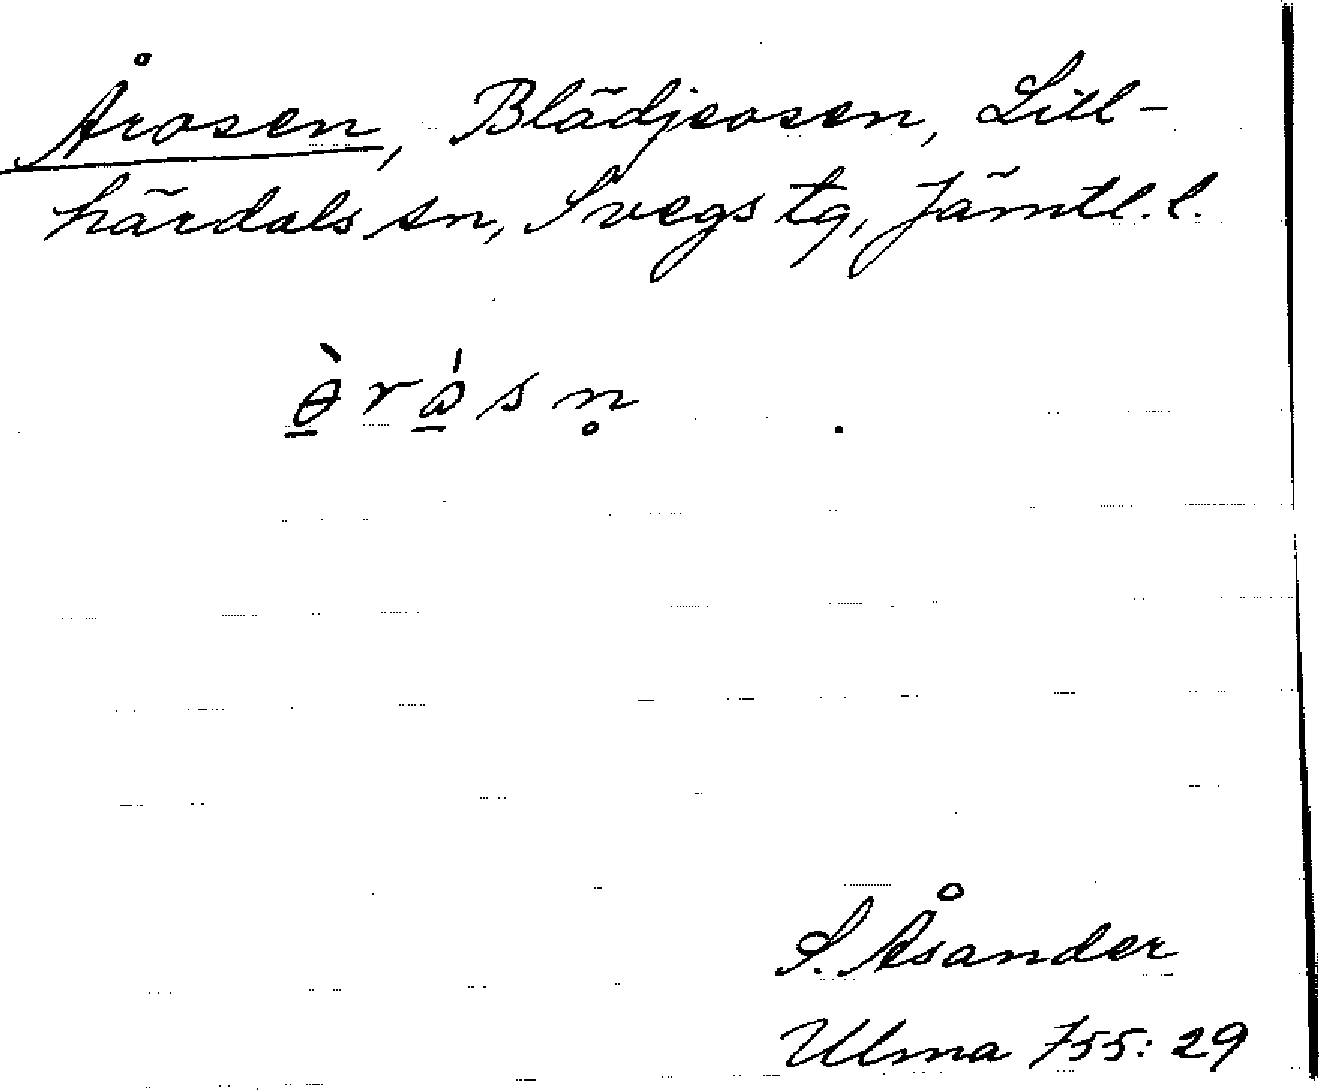 Årosen, Blädjeosen, Lill-
härdals sn, Svegs tg, Jämtl. l.
ɵ̠̀rɷ̠́sn̥
S. Åsander
Ulma 755: 29